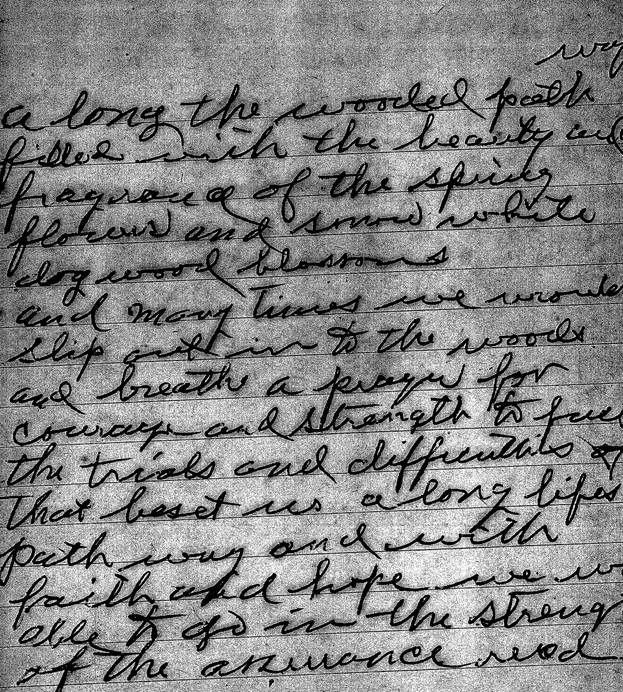 way
a long the wooded path
filled with the beauty and
fragrance of the spring
flowers and snow white
dog wood blossoms
and many times we would
slip out in to the woods
and breathe a prayer for
courage and strength to face
the trials and difficulties
that beset us a long lifes
path way and with
faith and hope we w
able to go in the streng
of the assurance